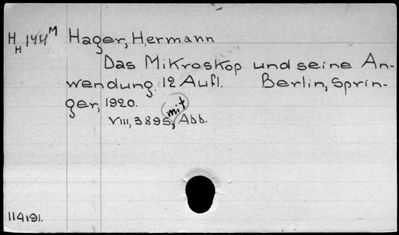 H H 144 M Hager, Hermann
Das Mikroskop und seine An-
wendung. 12 Aufl. Berlin, Sprin-
ger, 1920.
mit
VIII, 389S, Abb.
114191.